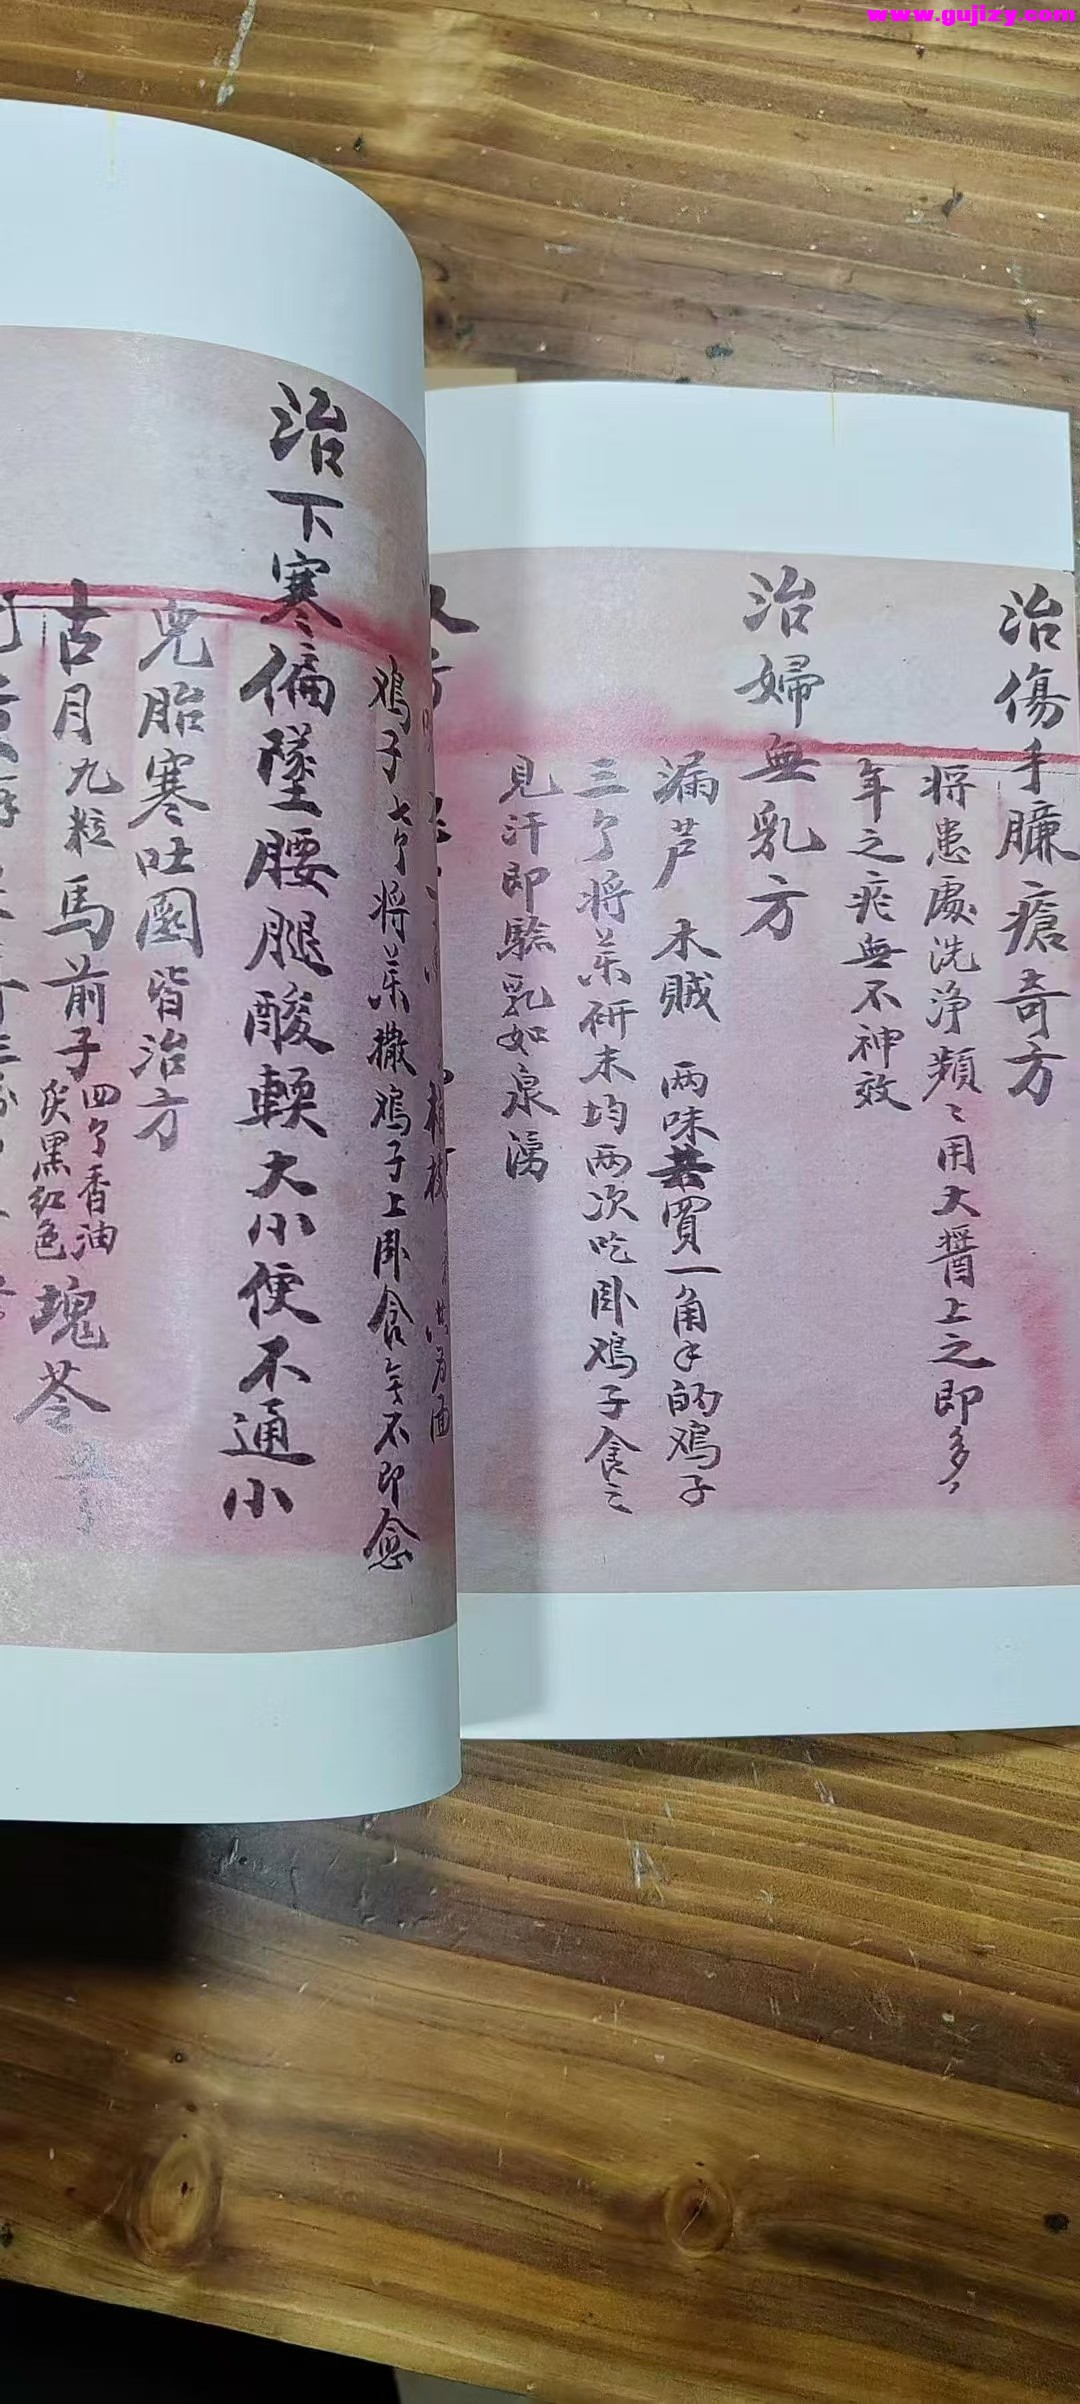 www.gujizy.com
治傷手臁瘡奇方
將患處洗浄頻〻用大醬上之即多
年之疮無不神效
治婦無乳方
漏芦 木贼 两味共買一角半的鸡子
三个將药研末均两次吃卧鸡子食之
見汗即驗乳如泉湧
鸡子七个將药撒鸡子上卧食無不即愈
治下寒偏墜腰腿酸輭大小便不通小
児胎寒吐圆皆治方
古月九粒馬前子四个香油炙黑红色塊苓